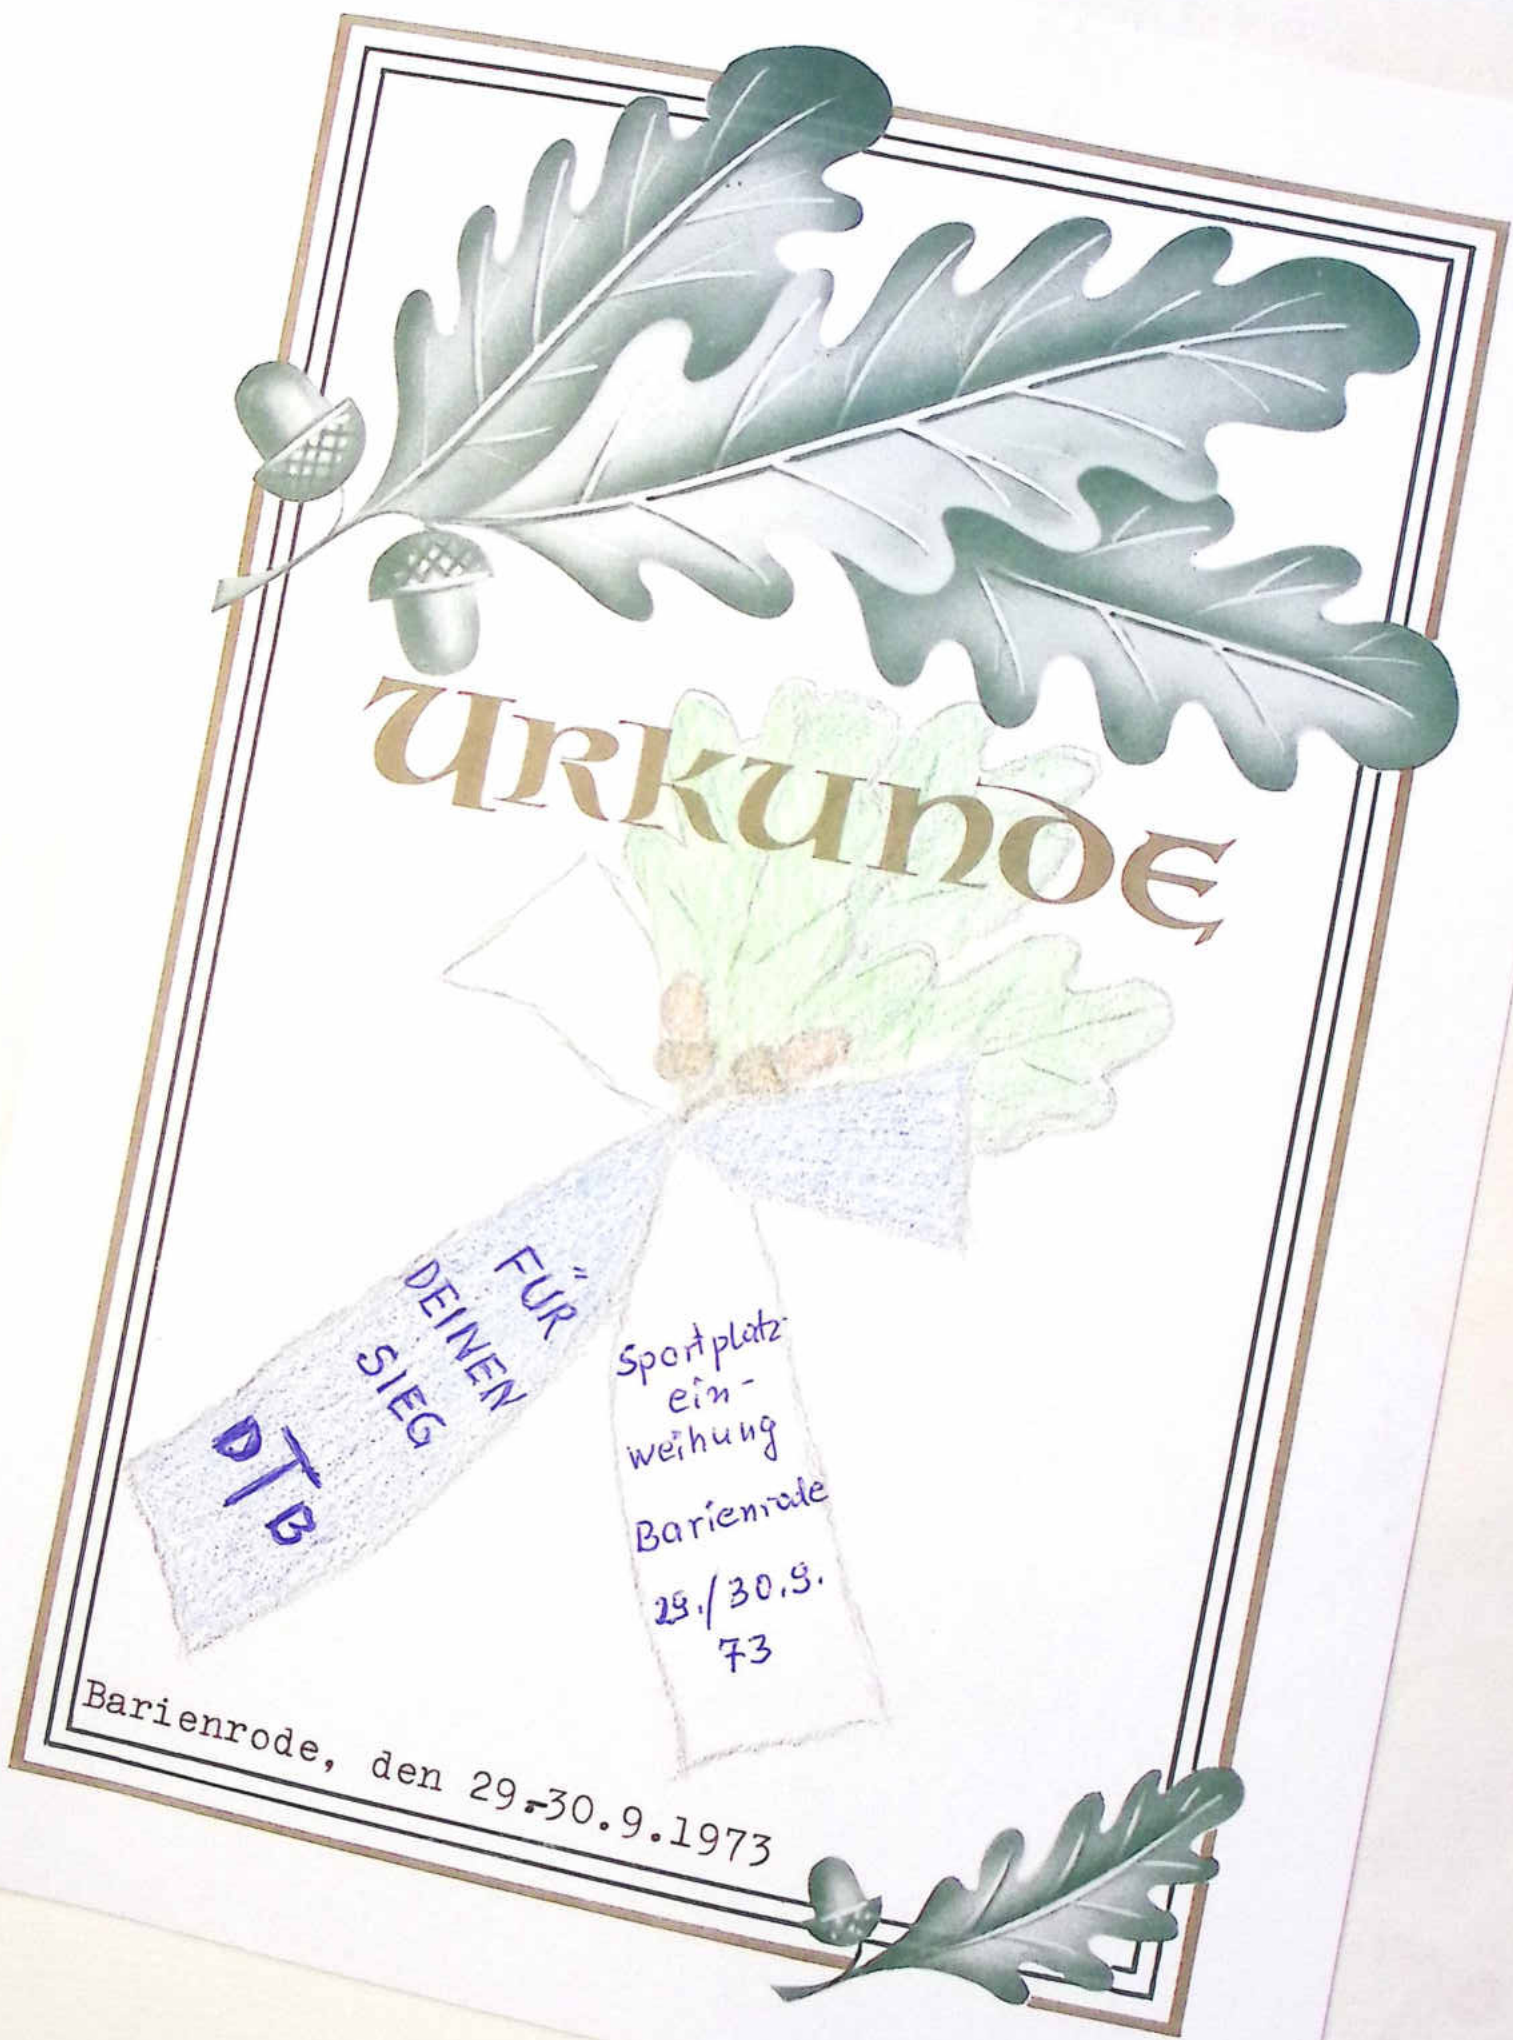 Urkunde
FÜR
DEINEN
SIEG
DTB
Sportplatz-
ein-
weihung
Barienrode
29./30.9.
73
Barienrode, den 29.-30.9.1973